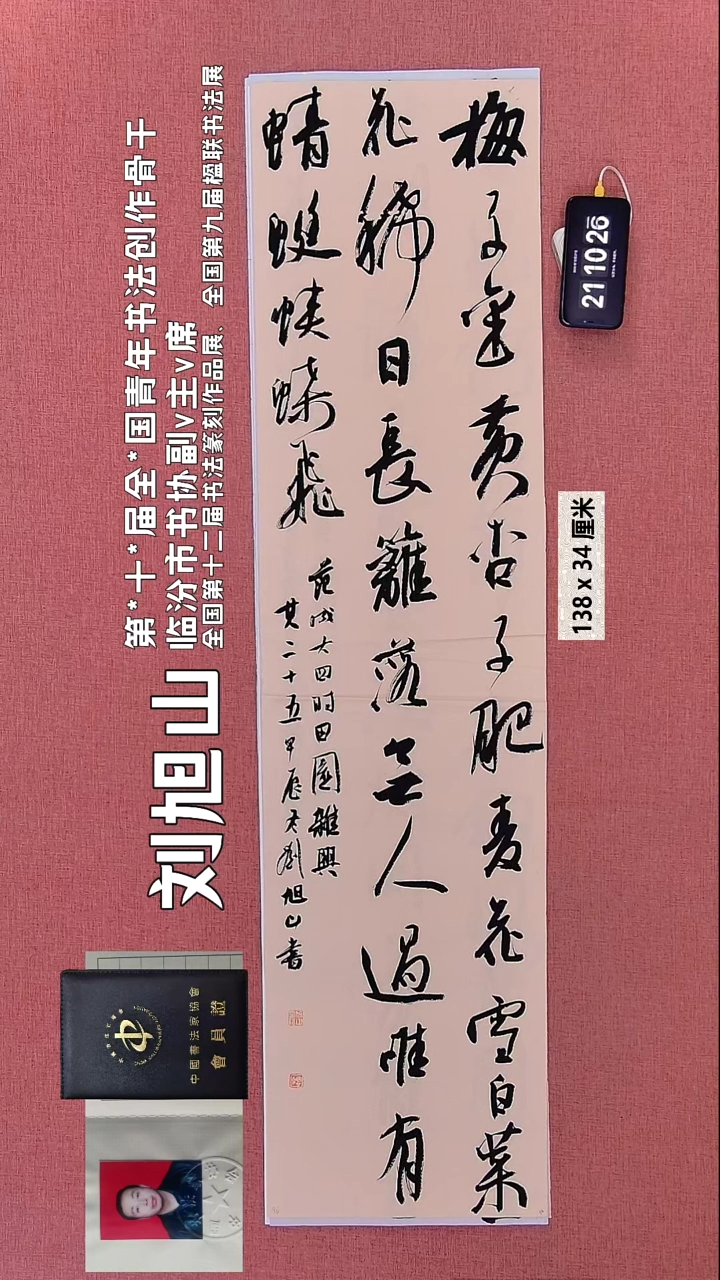 梅子金黄杏子肥麦花雪白菜
花稀日長籬落無人過唯有
蜻蜓蛺蝶飛
范成大四时田園雜興
其二十五甲辰冬劉旭山書
刘旭山
第*十*届全*国青年书法创作骨干
临汾市书协副v主v席
全国第十二届书法篆刻作品展、全国第九届楹联书法展
中國書法家協會
會員證
21 10 26
138 x 34 厘米